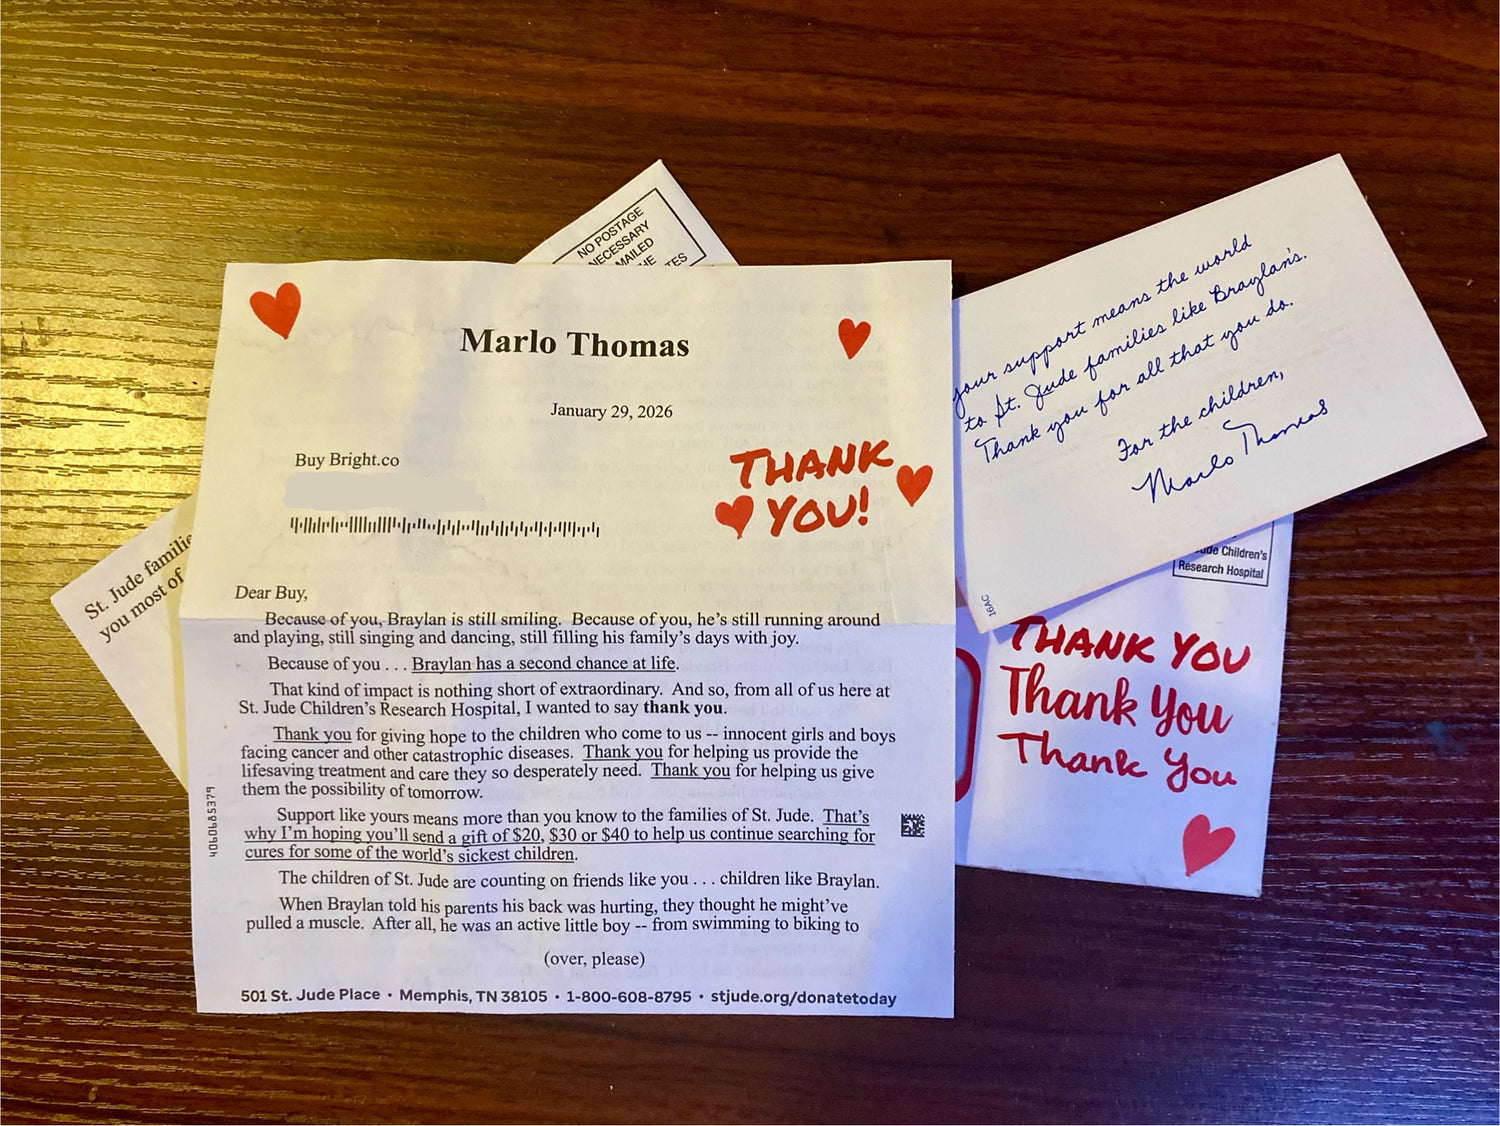 NO POSTAGE
NECESSARY
MAILED
THE
TES
Marlo Thomas
January 29, 2026
Buy Bright.co
THANK
YOU!
Dear Buy,
Because of you, Braylan is still smiling. Because of you, he's still running around
and playing, still singing and dancing, still filling his family's days with joy.
Because of you . . . Braylan has a second chance at life.
That kind of impact is nothing short of extraordinary. And so, from all of us here at
St. Jude Children's Research Hospital, I wanted to say thank you.
Thank you for giving hope to the children who come to us -- innocent girls and boys
facing cancer and other catastrophic diseases. Thank you for helping us provide the
lifesaving treatment and care they so desperately need. Thank you for helping us give
them the possibility of tomorrow.
Support like yours means more than you know to the families of St. Jude. That's
why I'm hoping you'll send a gift of $20, $30 or $40 to help us continue searching for
cures for some of the world's sickest children.
The children of St. Jude are counting on friends like you . . . children like Braylan.
When Braylan told his parents his back was hurting, they thought he might've
pulled a muscle. After all, he was an active little boy -- from swimming to biking to
(over, please)
501 St. Jude Place • Memphis, TN 38105 • 1-800-608-8795 • stjude.org/donatetoday
4060685379
St. Jude familie
you most of
your support means the world
to St. Jude families like Braylan's.
Thank you for all that you do.
For the children,
Marlo Thomas
16AC
ude Children's
Research Hospital
THANK YOU
Thank You
Thank You